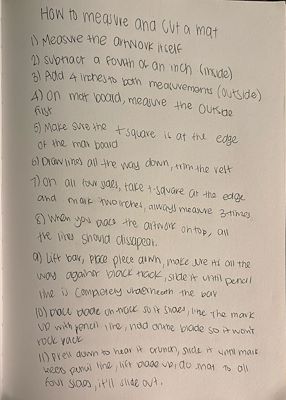 How to measure and cut a mat
1) Measure the artwork itself
2) subtract a fourth of an inch (inside)
3) Add 4 inches to both measurements (outside)
4) On mat board, measure the outside
first
5) Make sure the t square is at the edge
of the mat board
6) Draw lines all the way down, trim the rest
7) On all four sides, take t-square at the edge
and mark two inches, always measure 3 times.
8) When you place the artwork on top, all
the lines should disapear.
9) Lift bar, place piece down, make sure its all the
way against black track, slide it until pencil
line is completely underneath the bar
10) place blade on track so it slides, line the mark
up with pencil line, hold blade so it won't
rock back
11) press down to hear it crunch, slide it until mark
meets pencil line, lift blade up, do that to all
four sides, it'll slide out.